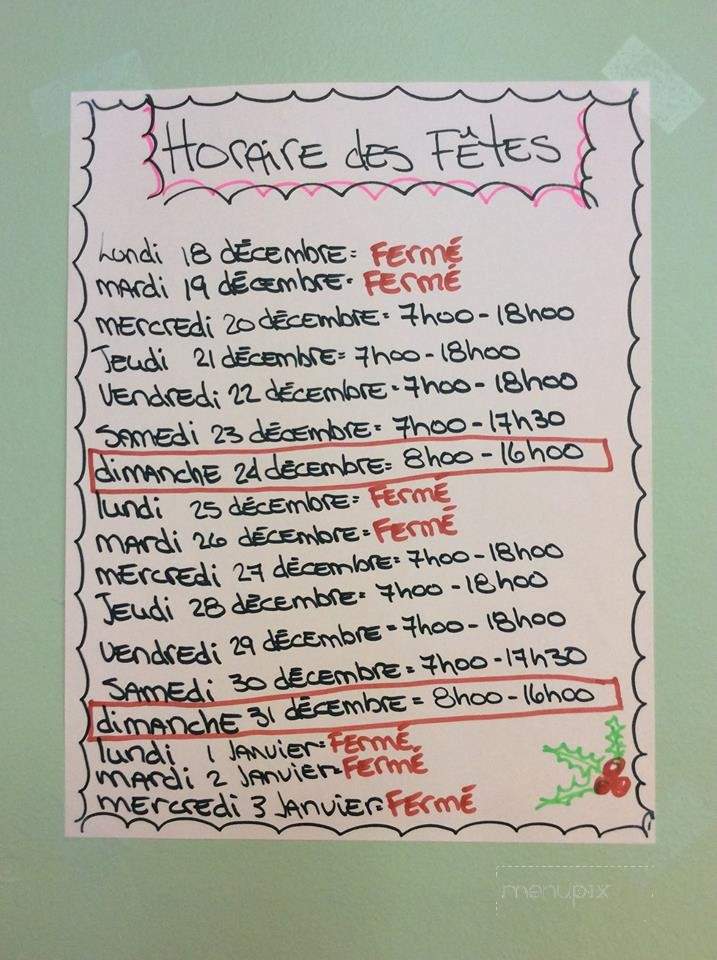 Horaire des Fêtes
Lundi 18 décembre = Fermé
mardi 19 décembre = Fermé
mercredi 20 décembre = 7h00 - 18h00
Jeudi 21 décembre = 7h00 - 18h00
Vendredi 22 décembre = 7h00 - 18h00
Samedi 23 décembre = 7h00 - 17h30
dimanche 24 décembre = 8h00 - 16h00
lundi 25 décembre = Fermé
mardi 26 décembre = Fermé
mercredi 27 décembre = 7h00 - 18h00
Jeudi 28 décembre = 7h00 - 18h00
Vendredi 29 décembre = 7h00 - 18h00
Samedi 30 décembre = 7h00 - 17h30
dimanche 31 décembre = 8h00 - 16h00
lundi 1 Janvier = Fermé
mardi 2 Janvier = Fermé
mercredi 3 Janvier = Fermé
menupix